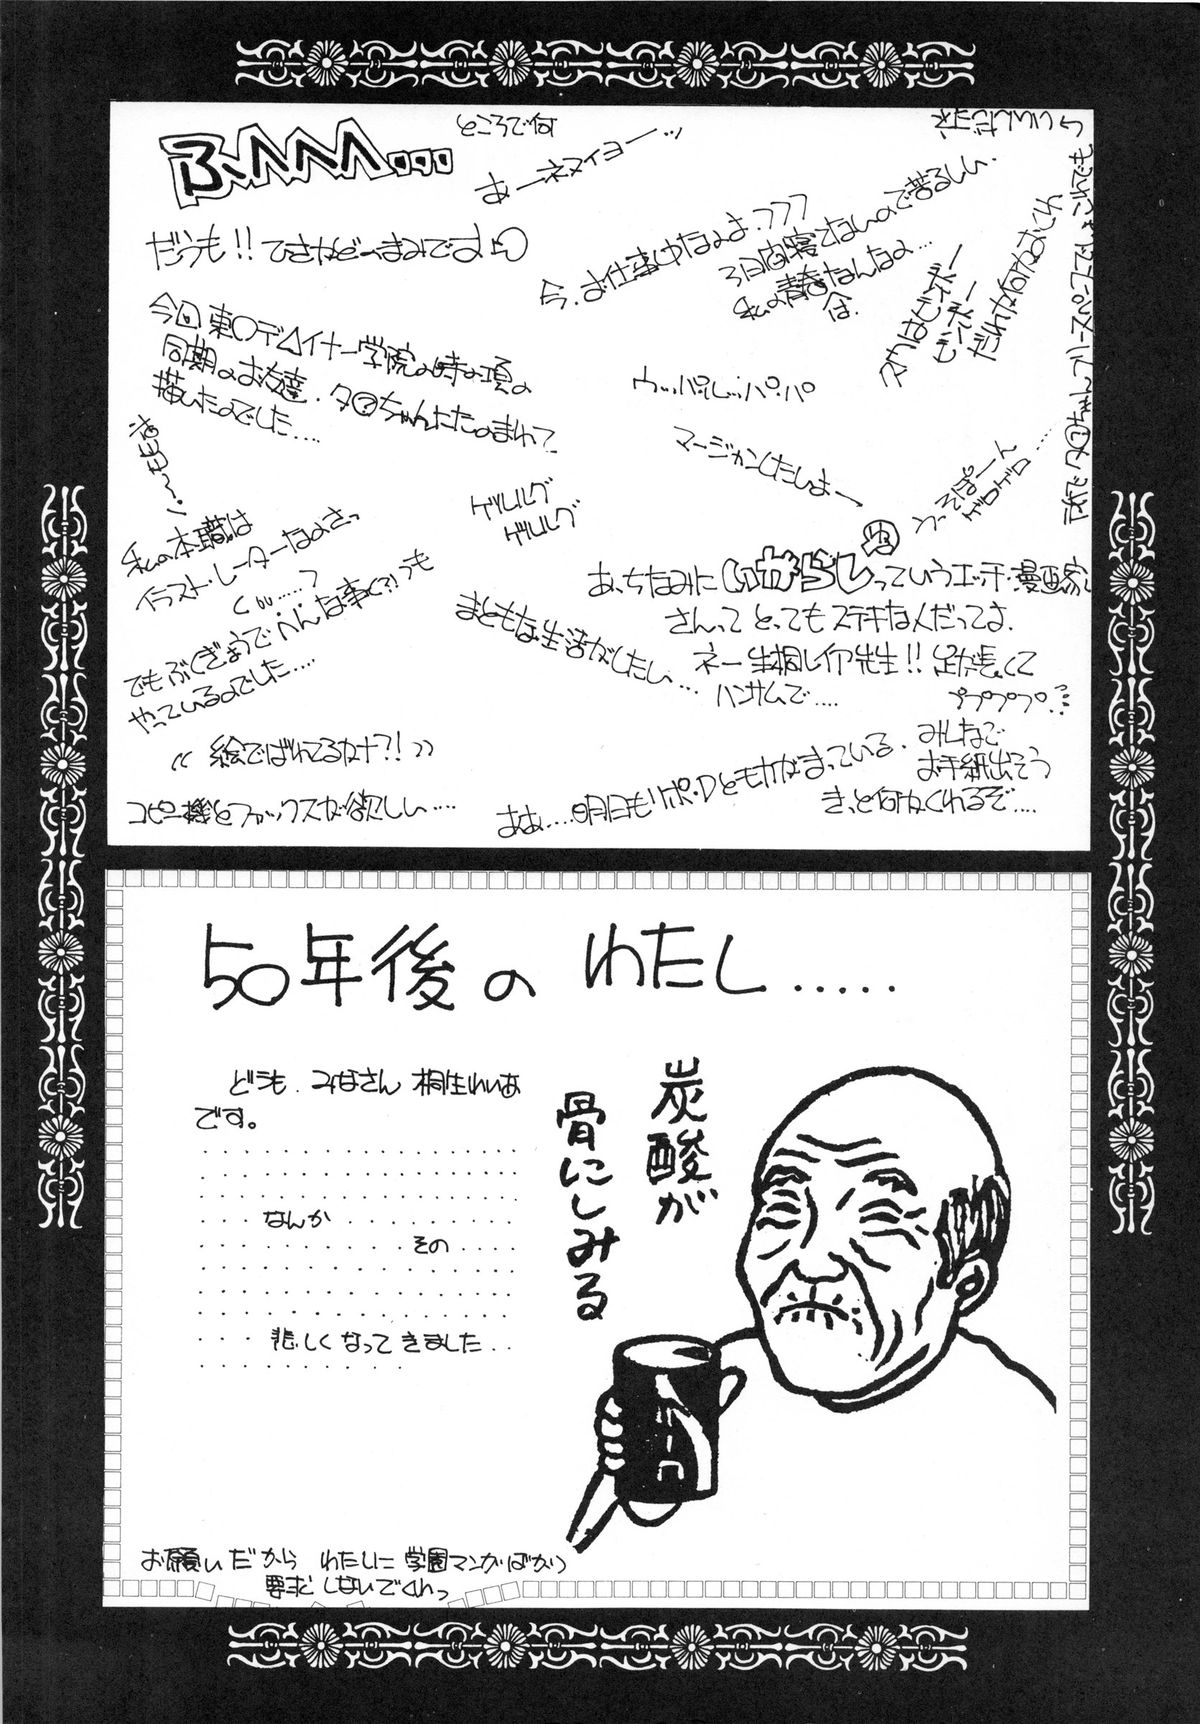 ふへへへ...
ところで何
あーネヌイヨーッ
だうも!!ひさかどーまみです
今回東○デ△イナー学院の時の項の
同期のお友達.タ○ちゃんにたのまれて
描いたのでした....
今.お仕事中なのよ.フフフ
3日間寝てないので苦るしい.
私の青春なんなの...
は.
だれか何かおくれ
いいんだヨネ
ウッパルパ・パ
マージャンしたいよー
ゲルルグ
ゲルルグ
私の本職は
イラスト・レーターなのさっ
くぅ.....?
でもぶくぎようでへんな事(?)も
やっているのでした....
《絵でばれてるカナ?!》
コピー機とファックスが欲しい....
まともな生活がしたい...
あ、ちなみにいがらしっていうエッチ・漫画家
さんってとってもステキな人だってよ.
ネー生桐レイア先生!!足が長くて
ハンサムで....
プププププ...
みんなで
お手紙出そう
きっと何かくれるぞ....
ああ....明日もリポ・Dとモカがまっている.
50年後の わたし.....
どうも.みなさん 桐生れいあ
です。
なんか
その
悲しくなってきました..
炭酸が
骨にしみる
お願いだから わたしに 学園マンガばかり
要求しないでくれっ